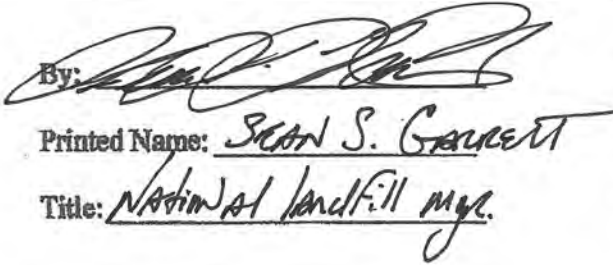 By:
Printed Name: SEAN S. GARRETT
Title: National landfill Mgr.